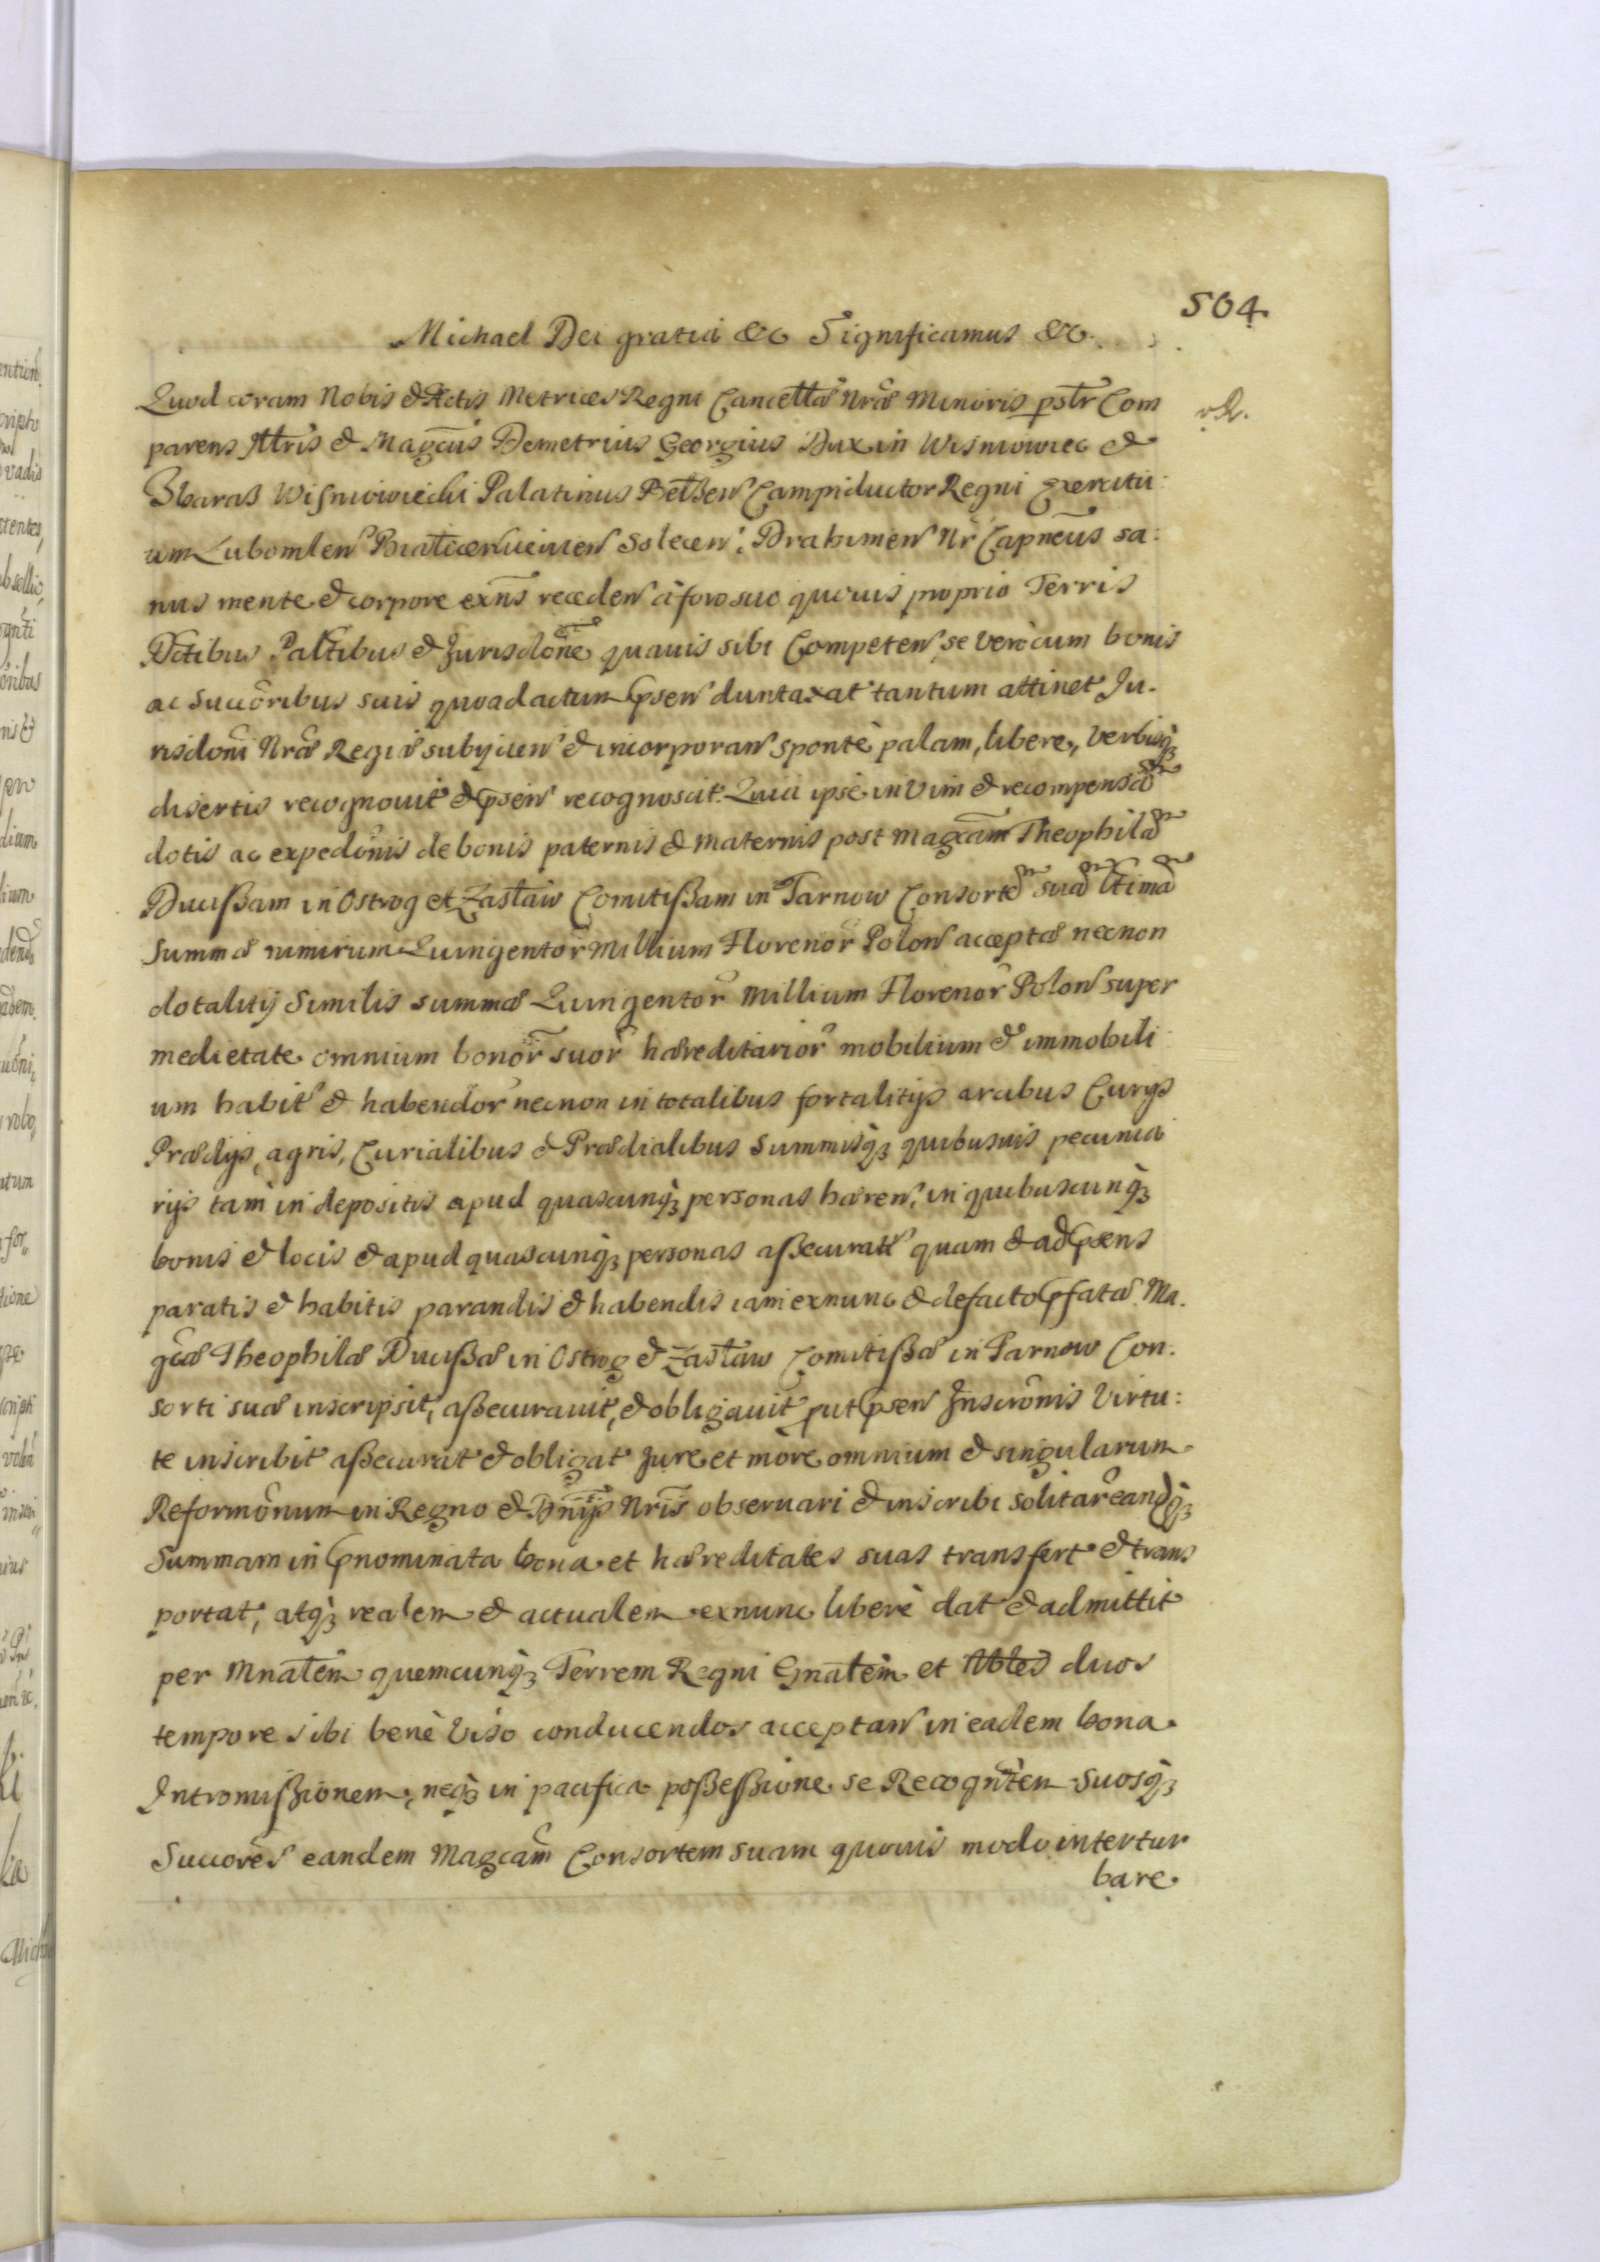 504.
Michael Dei gratia &c Significamus &c.
Quod coram Nobis & Actis Metrices Regni Cancellæ Nræ Minoris pstr Com
parens Illris & Magcus Demetrius Georgius Dux in Wisniowiec &
Zbaraß Wisniowiecki Palatinus Belzen Campiductor Regni Exercitu:
um Lubomlen Solecen Drahimen Nr Capneus sa:
nus mente & corpore exns receden à foro suo quovis proprio Terris
Dctibus Paltibus & Jurisdone quavis sibi Competen se verò cum bonis
ac Succoribus suis quoad actum psen duntaxat tantum attinet Ju.
risdoni Nræ Regiæ subijcien & incorporan spontè palam, libere, verbisq3
disertis recognovit & psen recognoscit. Quia ipse in vim & recompensa
dotis ac expedonis de bonis paternis & maternis post Magcam Theophila
Ducißam in Ostrog et Zasław Comitißam in Tarnow Consorte sua ltima
Summæ nimirum Quingentor Millium Florenor Polon acceptæ necnon
dotalitij Similis summæ Quingentor Millium Florenor Polon super
medietate omnium bonor suor hæreditarior mobilium & immobili
um habit & habendor necnon in totalibus fortalitijs arcibus Curijs
Prædijs, agris, Curialibus & Prædialibus Summisq3 quibusvis pecunia
rijs tam in depositis apud quascunq3 personas hæren, in quibuscunq3
bonis & locis & apud quascunq3 personas aßecurat quam & ad psens
paratis & habitis parandis & habendis iam exnunc & defacto pfatæ Ma.
gcæ Theophilæ Ducißæ in Ostrog & Zasław Comitißæ in Tarnow Con.
sorti suæ inscripsit, aßecuravit, & obligavit put psen Inscronis Virtu:
te inscribit aßecurat & obligat Jure et more omnium & singularum
Reformonum in Regno & Dnijs Nris observari & inscribi solitar eandq3
Summam in pnominata bona et hæreditates suas transfert & trans
portat, atq3 realem & actualem exnunc liberè dat & admittit
per Mnalem quemcunq3 Terrem Regni Gnalem et Nbles duos
tempore sibi benè viso conducendos acceptan in eadem bona
Intromißionem, neq3 in pacifica poßeßione se Recogntem Suosq3
Succores eandem Magcam Consortem suam quovis modo intertur
bare